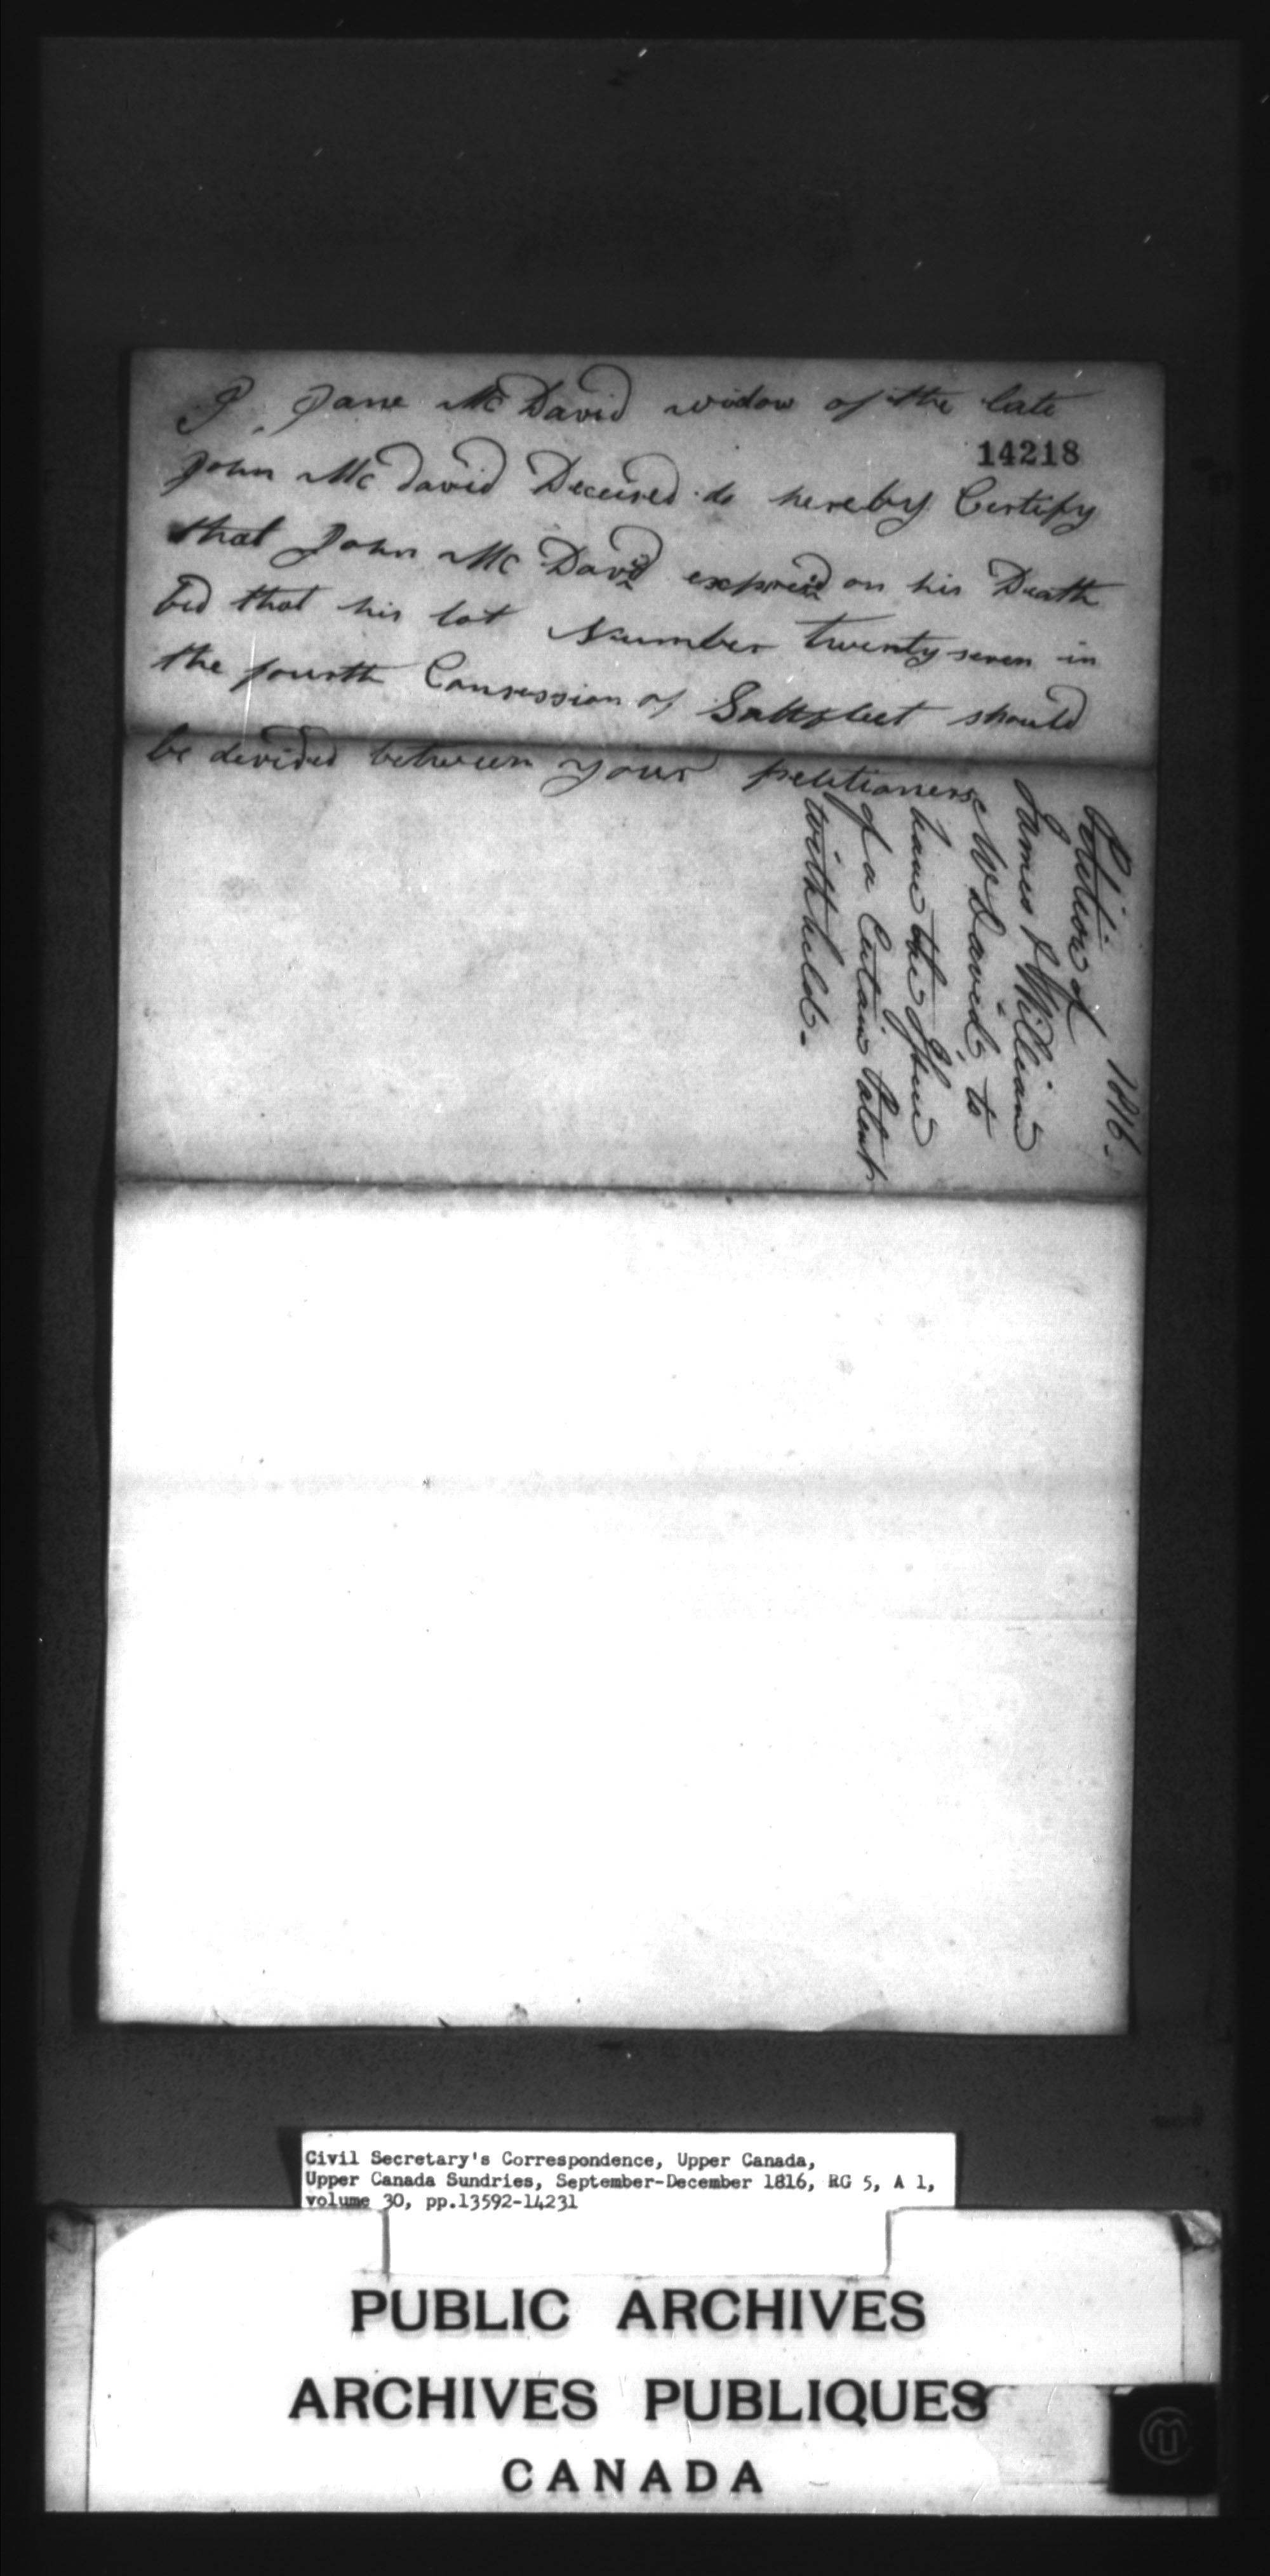 I, Jane McDavid widow of the late
14218
John Mc david Deceised do hereby Certify
that John Mc David expreid on his Death
bed that his lot Number twenty seven in
the fourth Conression of Saltfleet should
be devided between your petitioners
1816-
Petition of
James & William
McDavid to
have the
of a Certain Patent
withheld-
Civil Secretary's Correspondence, Upper Canada,
Upper Canada Sundries, September-December 1816, RG 5, A 1,
volume 30, pp.13592-14231
PUBLIC ARCHIVES
ARCHIVES PUBLIQUES
CANADA